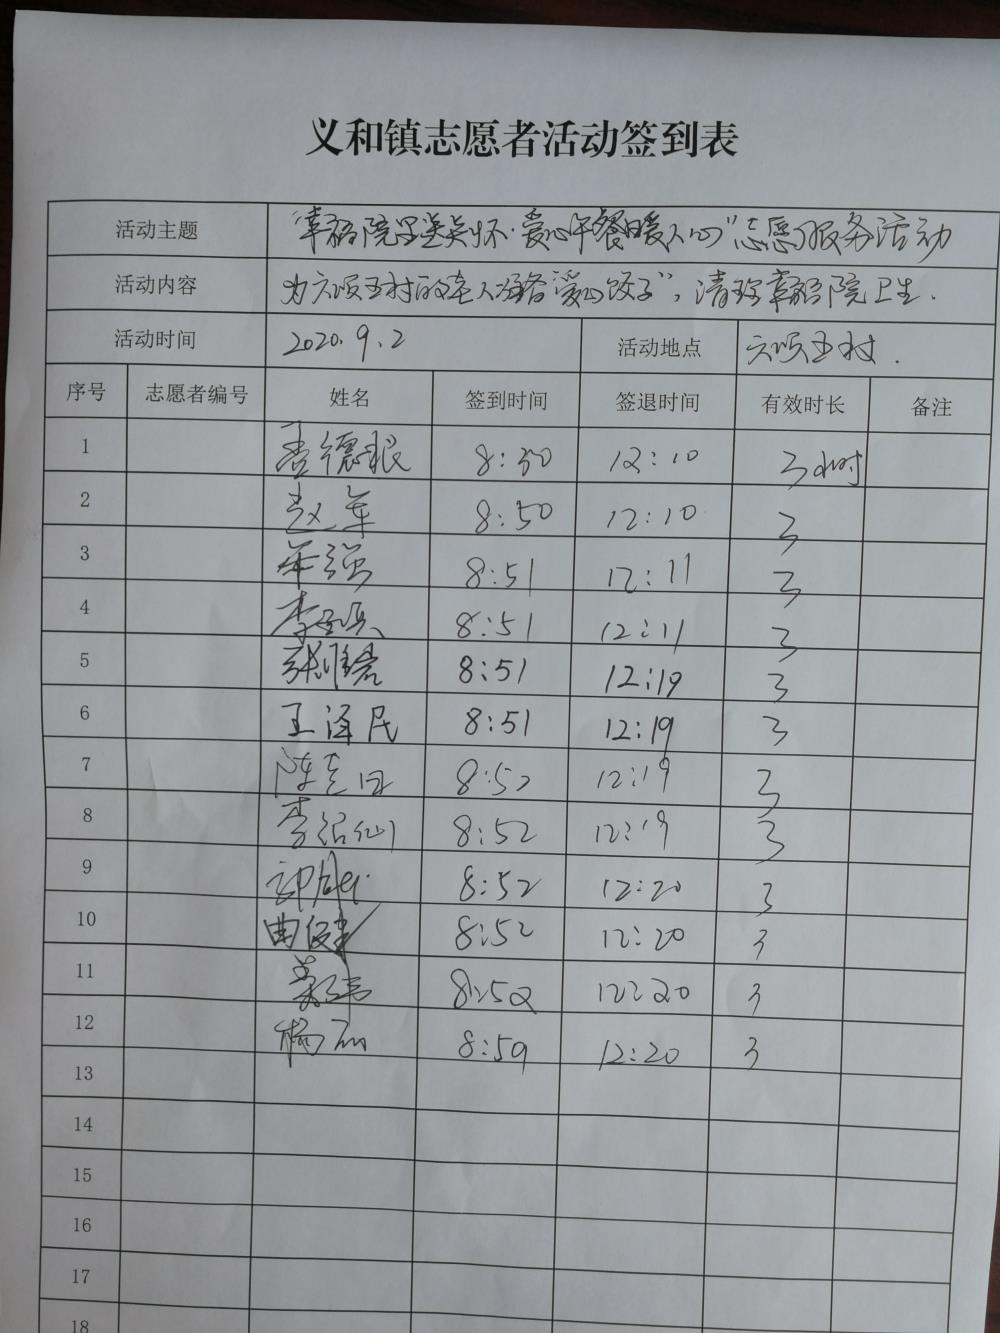 义和镇志愿者活动签到表
活动主题 "幸福院里送关怀·爱心午餐暖人心"志愿服务活动
活动内容 为六顷五村的老人准备"爱心饺子"，清理幸福院卫生.
活动时间 2020.9.2 活动地点 六顷五村.
序号 志愿者编号 姓名 签到时间 签退时间 有效时长 备注
1 12:10 3小时
2 赵军 8:50 12:10 3
3 8:51 12:11 3
4 8:51 12:11 3
5 8:51 12:19 3
6 王泽民 8:51 12:19 3
7 8:52 12:19 3
8 8:52 12:19 3
9 8:52 12:20 3
10 8:52 12:20 3
11 8:52 12:20 3
12 杨磊 8:59 12:20 3
13
14
15
16
17
18